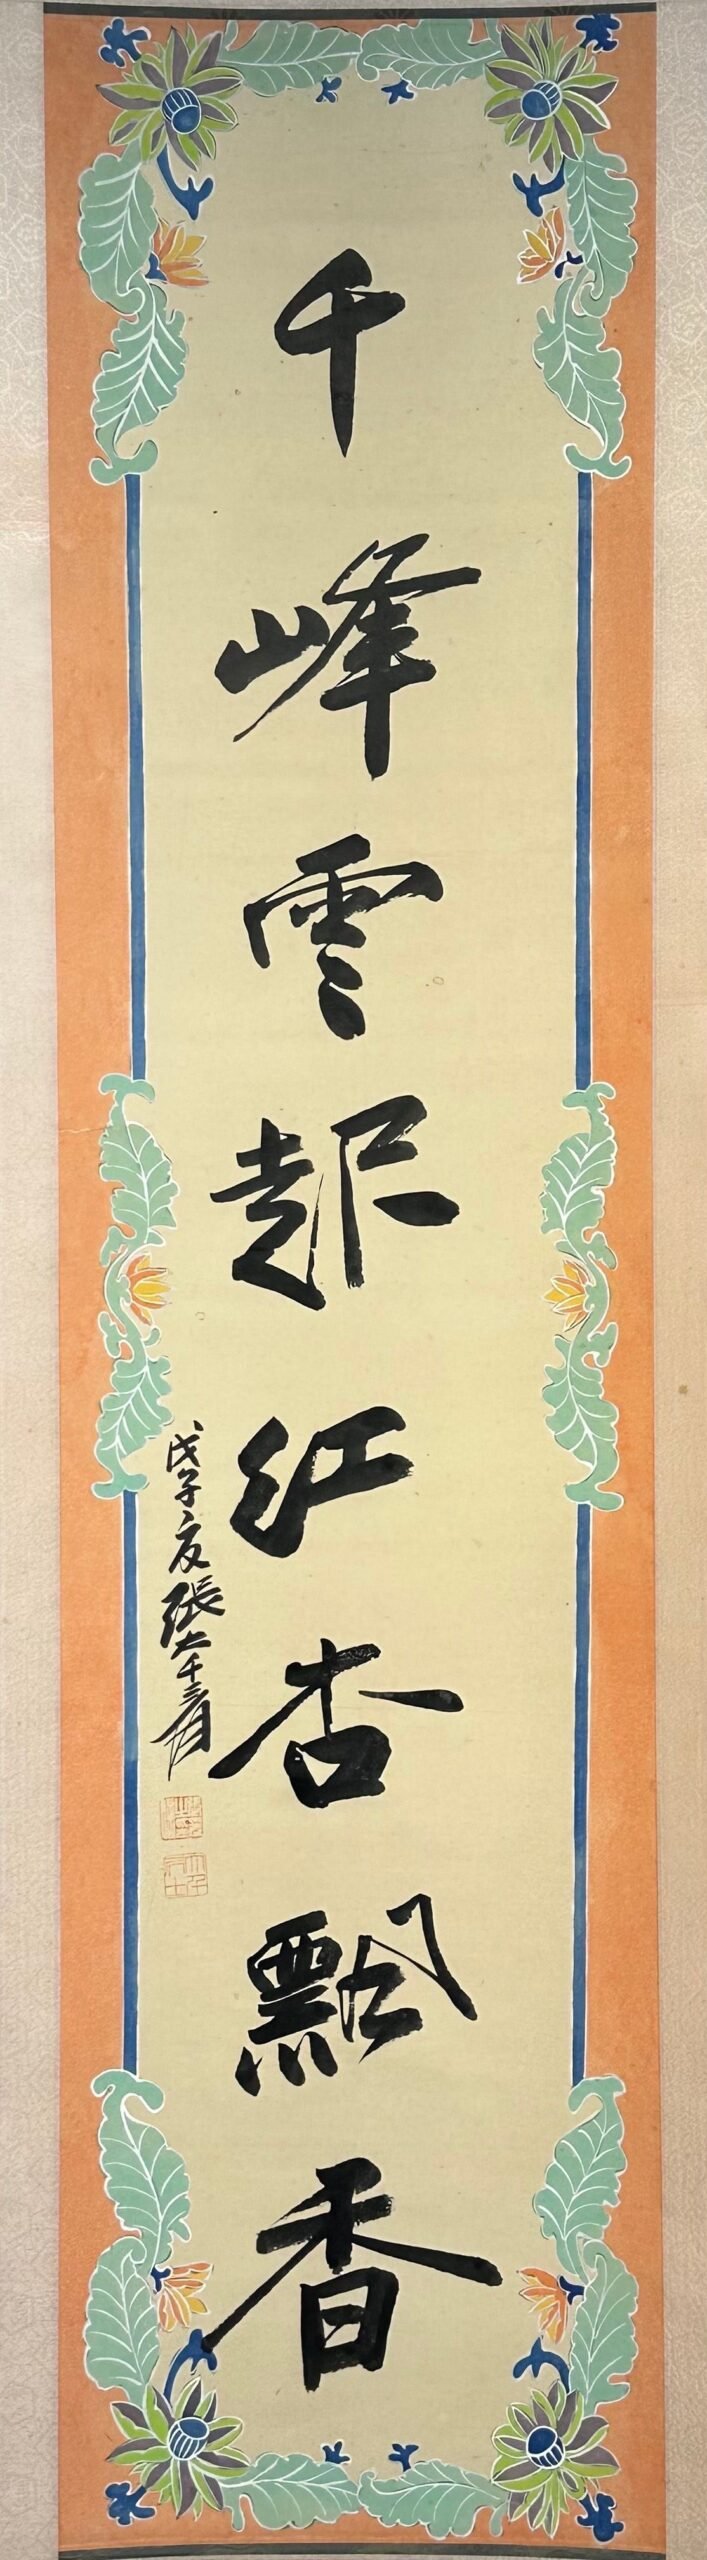 千峰雲起紅杏飄香
戊子夏張大千爰